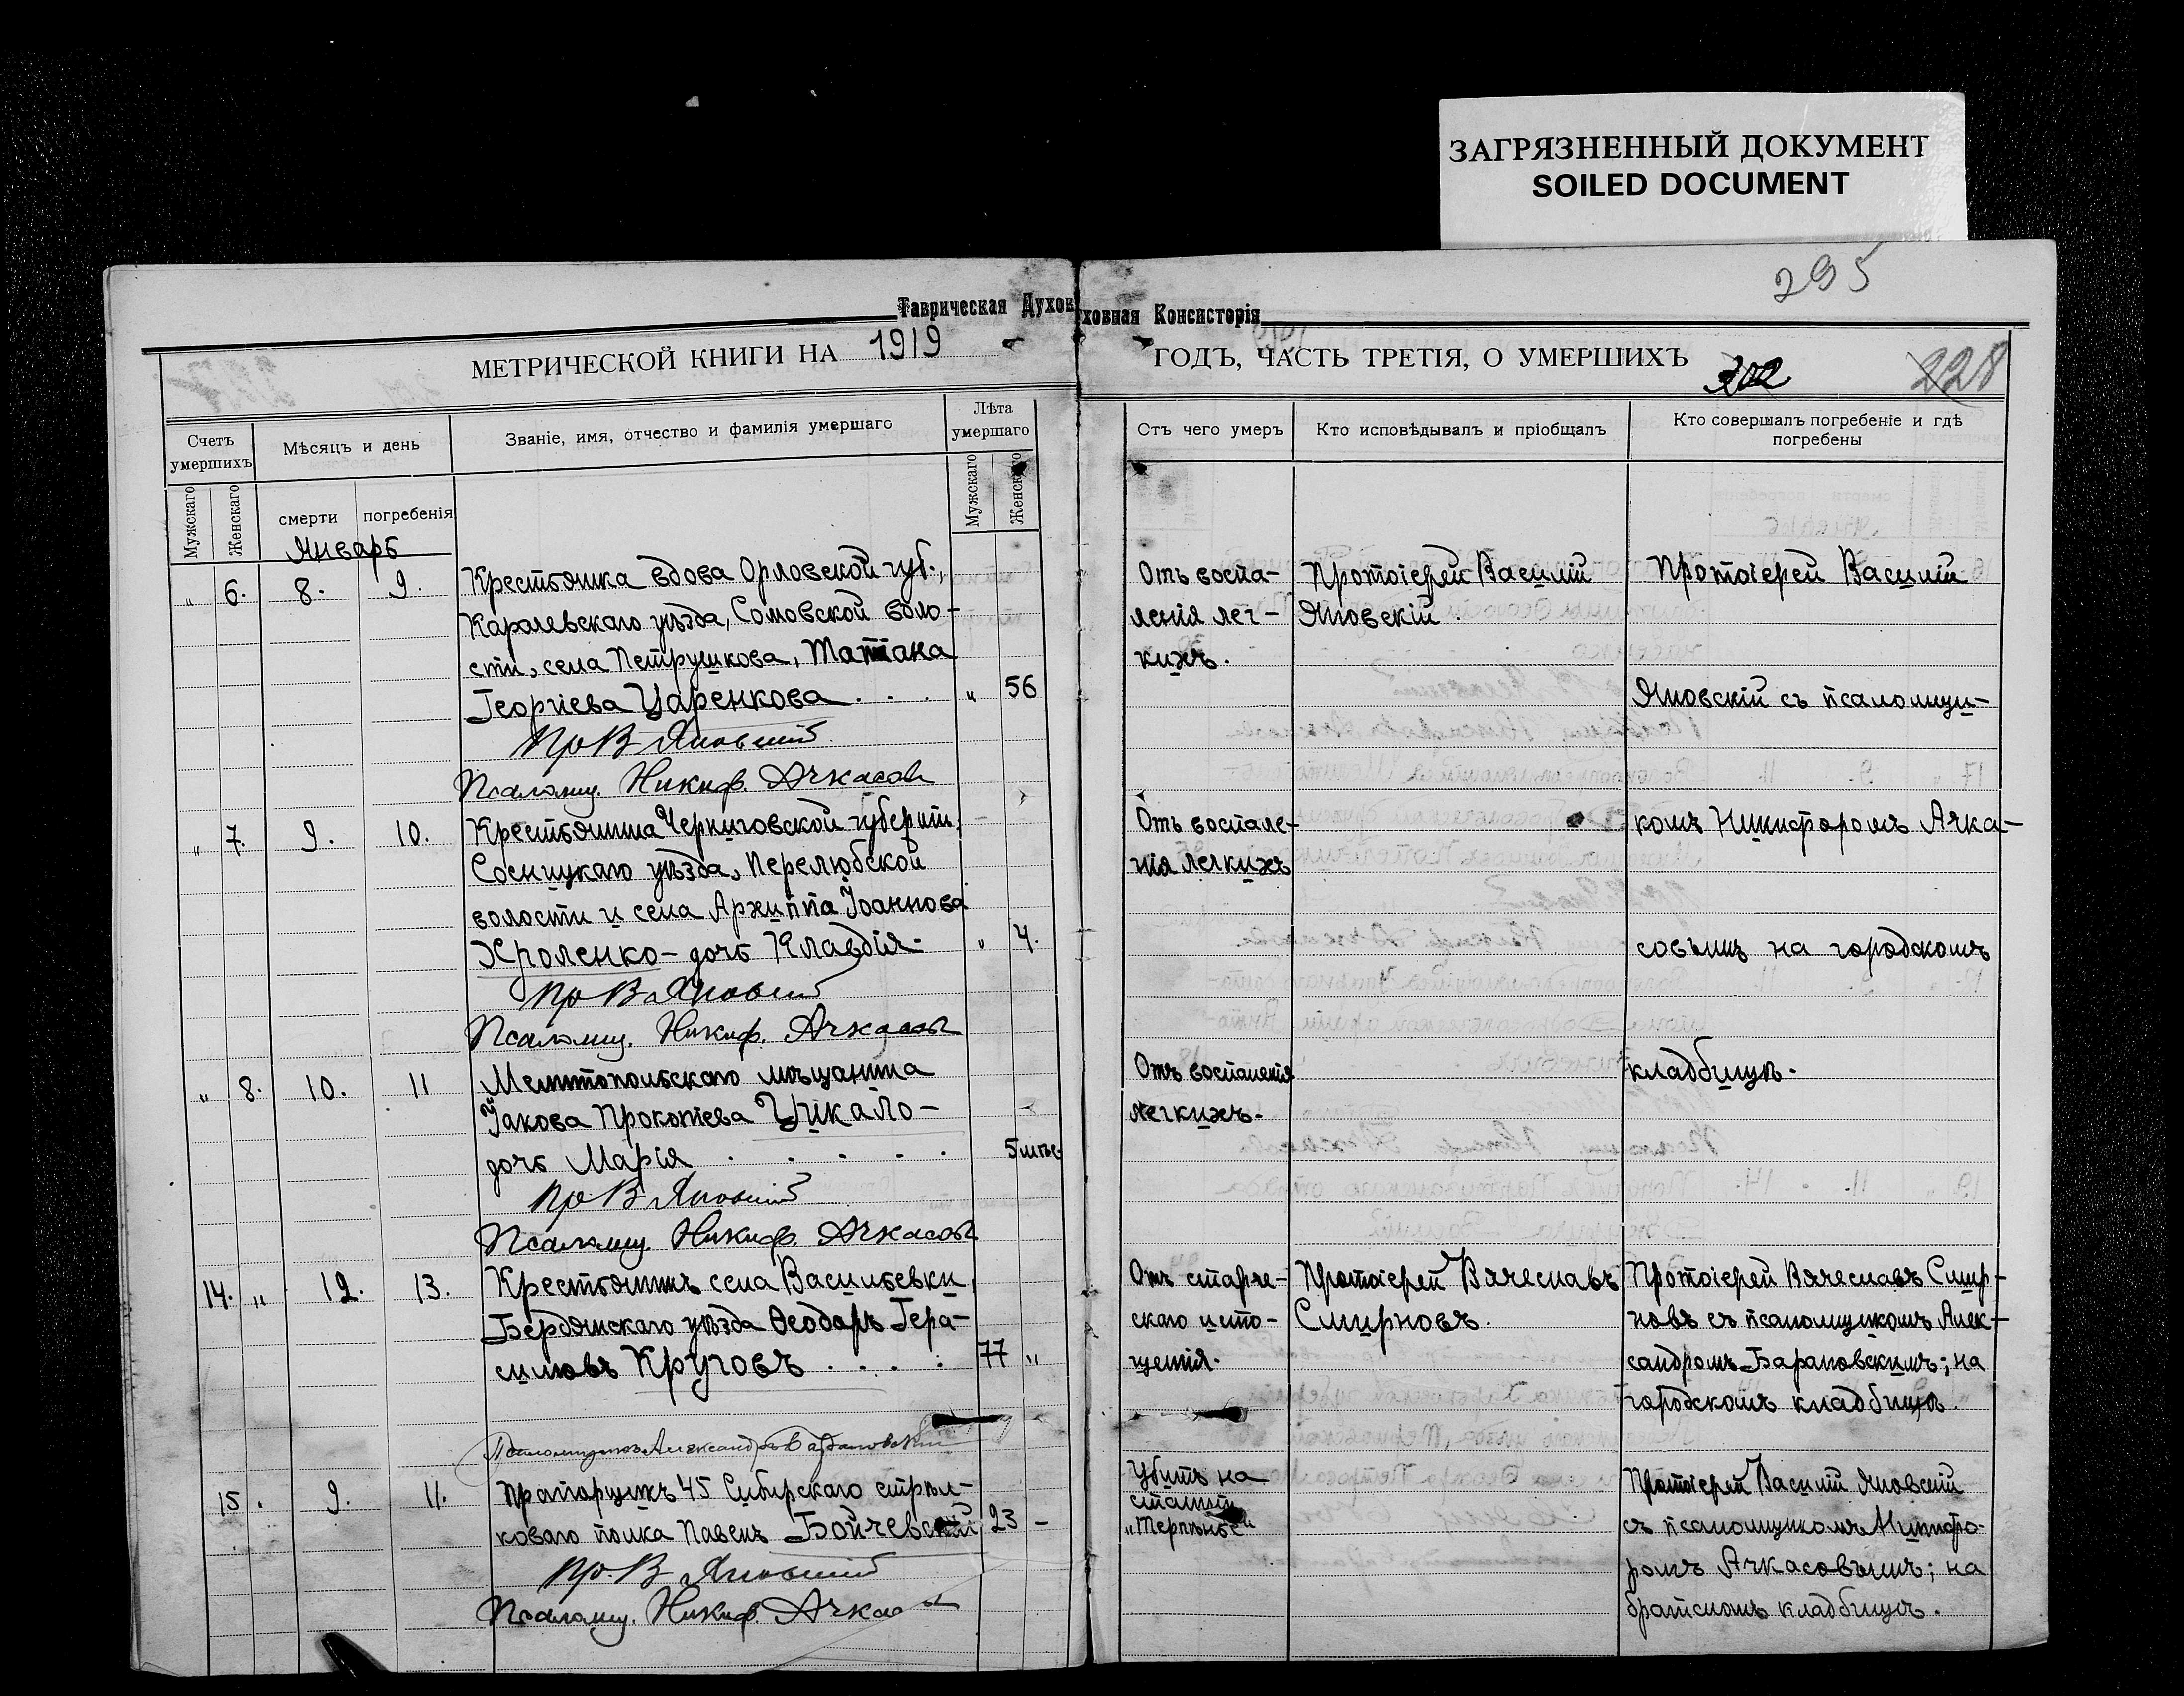 ЗАГРЯЗНЕННЫЙ ДОКУМЕНТ
SOILED DOCUMENT
295
Таврическая Духов
ховная Консисторія
МЕТРИЧЕСКОЙ КНИГИ НА 1919
ГОДЪ, ЧАСТЬ ТРЕТІЯ, О УМЕРШИХЪ
228
Счетъ умершихъ
Мѣсяцъ и день
Званіе, имя, отчество и фамилія умершаго
Лѣта умершаго
Отъ чего умеръ
Кто исповѣдывалъ и пріобщалъ
Кто совершалъ погребеніе и гдѣ
погребены
Мужскаго
Женскаго
смерти
погребенія
Мужскаго
Женскаго
Январь
„ 6. 8. 9.
Крестьянка вдова Орловской губ.,
Карачевскаго уѣзда, Сомовской воло-
сти, села Петрушкова, Татіана
Георгіева Царенкова . . . „ 56
Пр В Яновскій
Псаломщ. Никиф. Ачкасовъ
Отъ воспа-
ленія лег-
кихъ.
Протоіерей Василій
Яновскій.
Протоіерей Василій
Яновскій съ псаломщи-
„ 7. 9. 10.
Крестьянина Черниговской губерніи,
Сосницкаго уѣзда, Перелюбской
волости и села Архиппа Іоаннова
Хроленко - дочь Клавдія - „ 4.
Пр В Яновскій
Псаломщ. Никиф. Ачкасовъ
Отъ воспале-
нія легкихъ
комъ Никифоромъ Ачка-
совымъ на городскомъ
„ 8. 10. 11
Мелитопольскаго мѣщанина
Іакова Прокопіева Цикало -
дочь Марія . . . . . 5 мѣс.
Пр В Яновскій
Псаломщ. Никиф. Ачкасовъ
Отъ воспаленія
легкихъ.
кладбищѣ.
14. „ 12. 13.
Крестьянинъ села Васильевки,
Бердянскаго уѣзда Ѳеодоръ Гера-
симовъ Круговъ . . . . 77 „
Псаломщикъ Александръ Барановскій
Отъ старче-
скаго исто-
щенія.
Протоіерей Вячеславъ
Смирновъ.
Протоіерей Вячеславъ Смир-
новъ съ псаломщикомъ Алек-
сандромъ Барановскимъ; на
городскомъ кладбищѣ.
15 . 9. 11.
Прапорщикъ 45 Сибирскаго стрѣл-
коваго полка Павелъ Бойчевскій 23 -
Пр. В Яновскій
Псаломщ. Никиф. Ачкасовъ
Убитъ на
станціи
„Терпѣнье“
Протоіерей Василій Яновскій
съ псаломщикомъ Никифо-
ромъ Ачкасовымъ; на
братскомъ кладбищѣ.